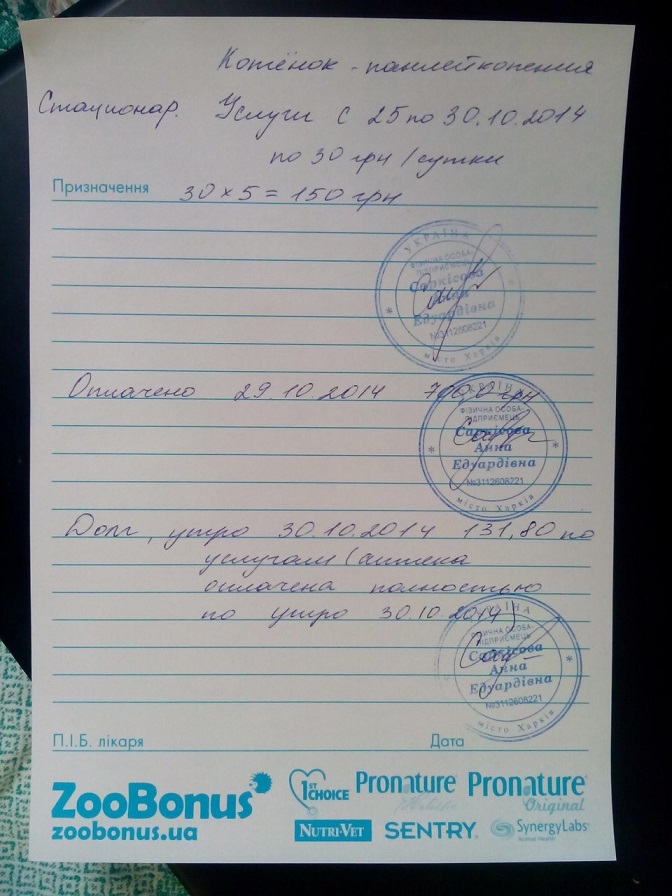 Котёнок - панлейкопения
Стационар. Услуги с 25 по 30.10.2014
по 30 грн/сутки
Призначення 30 x 5 = 150 грн
УКРАЇНА
ФІЗИЧНА ОСОБА-
ПІДПРИЄМЕЦЬ
Саркісова
Анна
Едуардівна
№3112608221
місто Харків
Оплачено 29.10.2014 грн
УКРАЇНА
ФІЗИЧНА ОСОБА-
ПІДПРИЄМЕЦЬ
Саркісова
Анна
Едуардівна
№3112608221
місто Харків
Долг, утро 30.10.2014 131,80 по
услугам (аптека
оплачена полностью
по утро 30.10.2014)
УКРАЇНА
ФІЗИЧНА ОСОБА-
ПІДПРИЄМЕЦЬ
Саркісова
Анна
Едуардівна
№3112608221
місто Харків
П.І.Б. лікаря Дата
ZooBonus
zoobonus.ua
1ST CHOICE
Pronature
Pronature
Original
NUTRI-VET
SENTRY
SynergyLabs
Animal Health